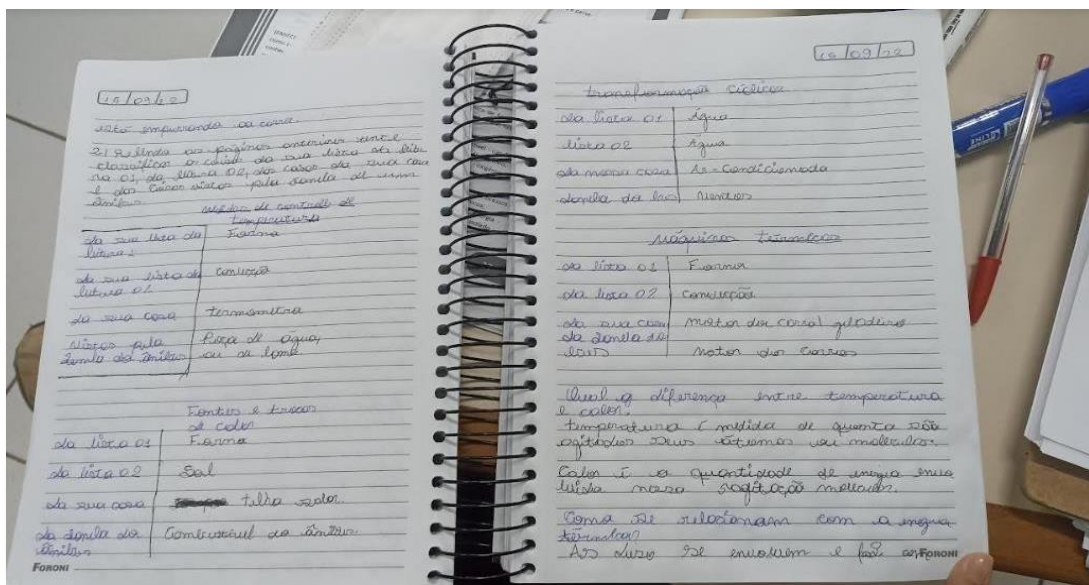 15/09/22
está empurrando o carro.
2) Relendo as páginas anteriores tente
classificar a coisa da sua lista da leitu
ra 01, da leitura 02, das coisas da sua casa
e das coisas vistas pela janela de um
ônibus
de controle de
temperatura
da sua lista da
leitura
Forma
da sua lista da
leitura 01
Convecção
da sua casa
termometro
Vistos pela
janela do ônibus
de água,
Fontes e trocas
de calor
da lista 01
Forma
da lista 02
Sol
da sua casa
telha solar
da janela do
ônibus
Combustível do ônibus
FORONI
15/09/22
transformação cíclicas
da lista 01
Água
lista 02
Água
da nossa casa
Ar-Condicionado
janela do bus
Máquinas térmicas
da lista 01
da lista 02
Convecção
da sua casa
motor do geladeira
da janela do
motor dos carros
Qual a diferença entre temperatura
e calor.
temperatura é medida de quanto são
agitados seus átomos ou moleculas.
Calor é a quantidade de energia envo
lvida nessa agitação molecular.
Como se relacionam com a energia
térmica?
As duas se envolvem e faz
FORONI